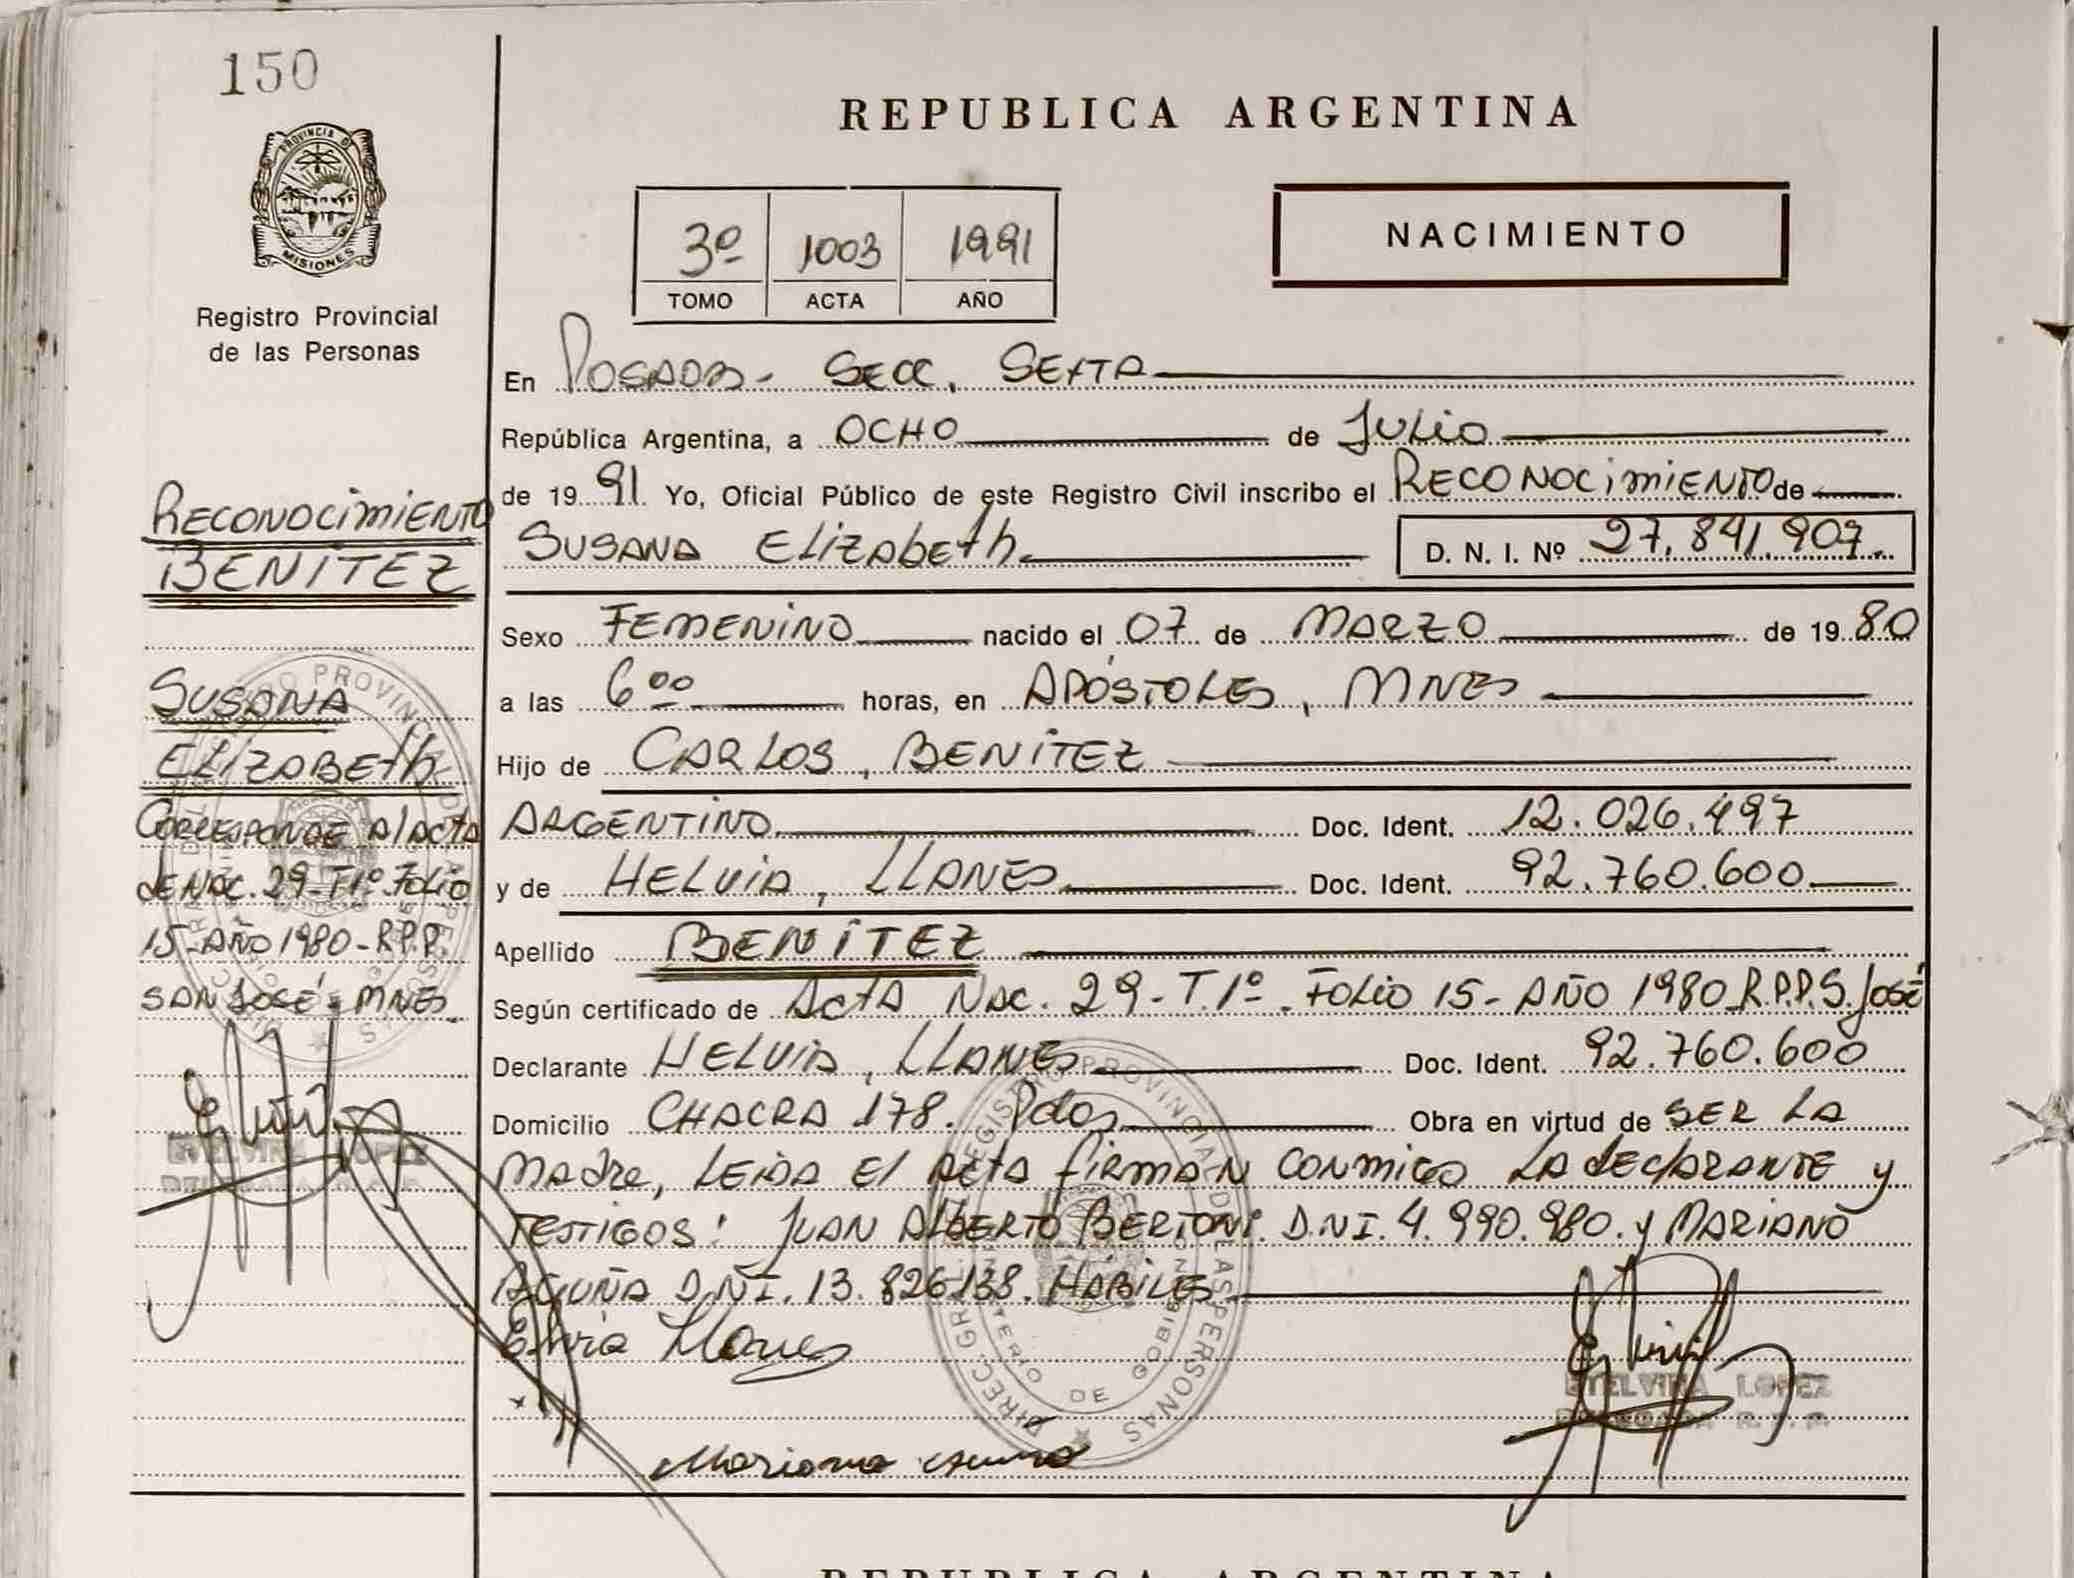 150
PROVINCIA DE
MISIONES
Registro Provincial
de las Personas
RECONOCIMIENTO
BENITEZ
SUSANA
ELIZABETH
CORRESPONDE Al Acta
de NAC. 29-T1º Folio
15-AÑO 1980-R.P.P.
SAN JOSÉ - MNES
ETELVINA LOPEZ
REPUBLICA ARGENTINA
3º 1003 1991
TOMO ACTA AÑO
NACIMIENTO
En POSADAS- SECC. SEXTA
República Argentina, a OCHO de JULIO
de 19 91 Yo, Oficial Público de este Registro Civil inscribo el RECONOCIMIENTO de
SUSANA ELIZABETH D. N. I. Nº 27.841.907
Sexo FEMENINO nacido el 07 de MARZO de 19 80
a las 6 00 horas, en APÓSTOLES, MNES
Hijo de CARLOS, BENITEZ
ARGENTINO Doc. Ident. 12.026.497
y de HELVIA, LLANES Doc. Ident. 92.760.600
Apellido BENITEZ
Según certificado de ACTA NAC. 29-T.1º. FOLIO 15- AÑO 1980 R.P.P.S. José
Declarante HELVIA, LLANES Doc. Ident. 92.760.600
Domicilio CHACRA 178. Pdas Obra en virtud de SER LA
MADRE, LEIDA El ACTA FIRMAN CONMIGO LA DECLARANTE y
TESTIGOS: JUAN ALBERTO BERTONI. D.N.I. 4.990.980. y MARIANO
ACUÑA D.N.I. 13.826.138. HABILES
Elvia Llanes
ETELVINA LOPEZ
DELEGADA R.P.P.
Mariano Acuña
DIREC. GRAL. REGISTRO PROVINCIAL DE LAS PERSONAS
MINISTERIO DE GOBIERNO
REPUBLICA ARGENTINA